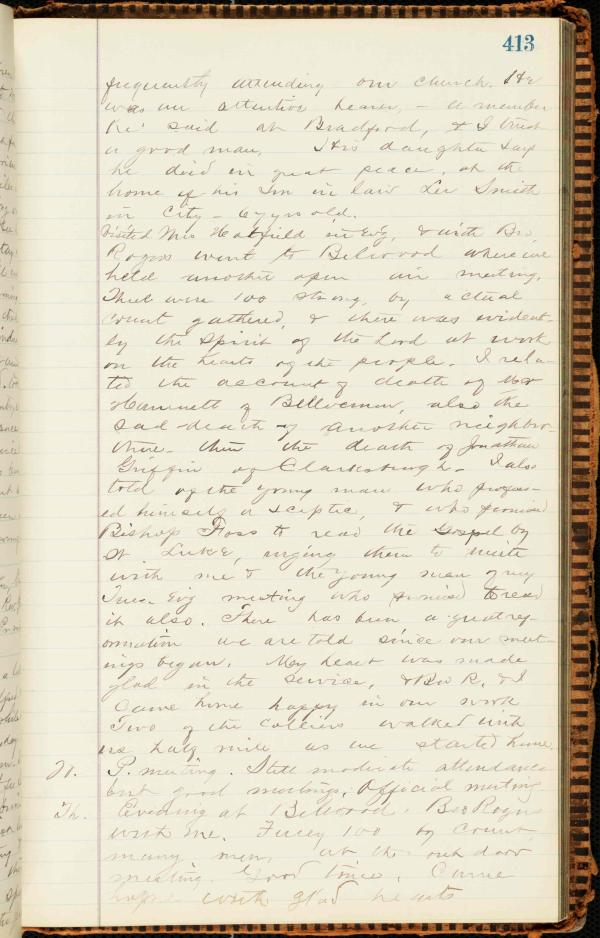 413
frequently attending our church. He
was an attentive hearer, - a member
he said at Bradford, & I trust
a good man. His daughter says
he died in great peace, at the
home of his Son in law Lee Smith
in City - 67 yrs old.
Visited Mrs Hatfield in Evg, & with Bro.
Rogers went to Belwood where we
held another open air meeting.
There were 100 strong, by actual
count gathered, & there was evident-
ly the Spirit of the Lord at work
on the hearts of the people. I rela-
ted the account of death of
Hammett of, also the
sad death of another neighbor
there - then the death of Jonathan
Griffin of Clarksburgh. I also
told of the young man who profess-
ed himself a sceptic, & who promised
Bishop Foss to read the Gospel by
St Luke, urging them to unite
with me & the young man of my
Tues. Evg meeting who promised to read
it also. There has been a great ref-
ormation we are told since our meet-
ings began. My heart was made
glad in the service, & Bro R. & I
came home happy in our work
Two of the colliers walked with
us half mile as we started home.
W. P. meeting. Still moderate attendance
but good meetings; Official meeting
Th. Evening at Belwood. Bro Rogers
with me. Fully 100 by count,
many men, at the out door
meeting. Good time. Came
home with glad hearts